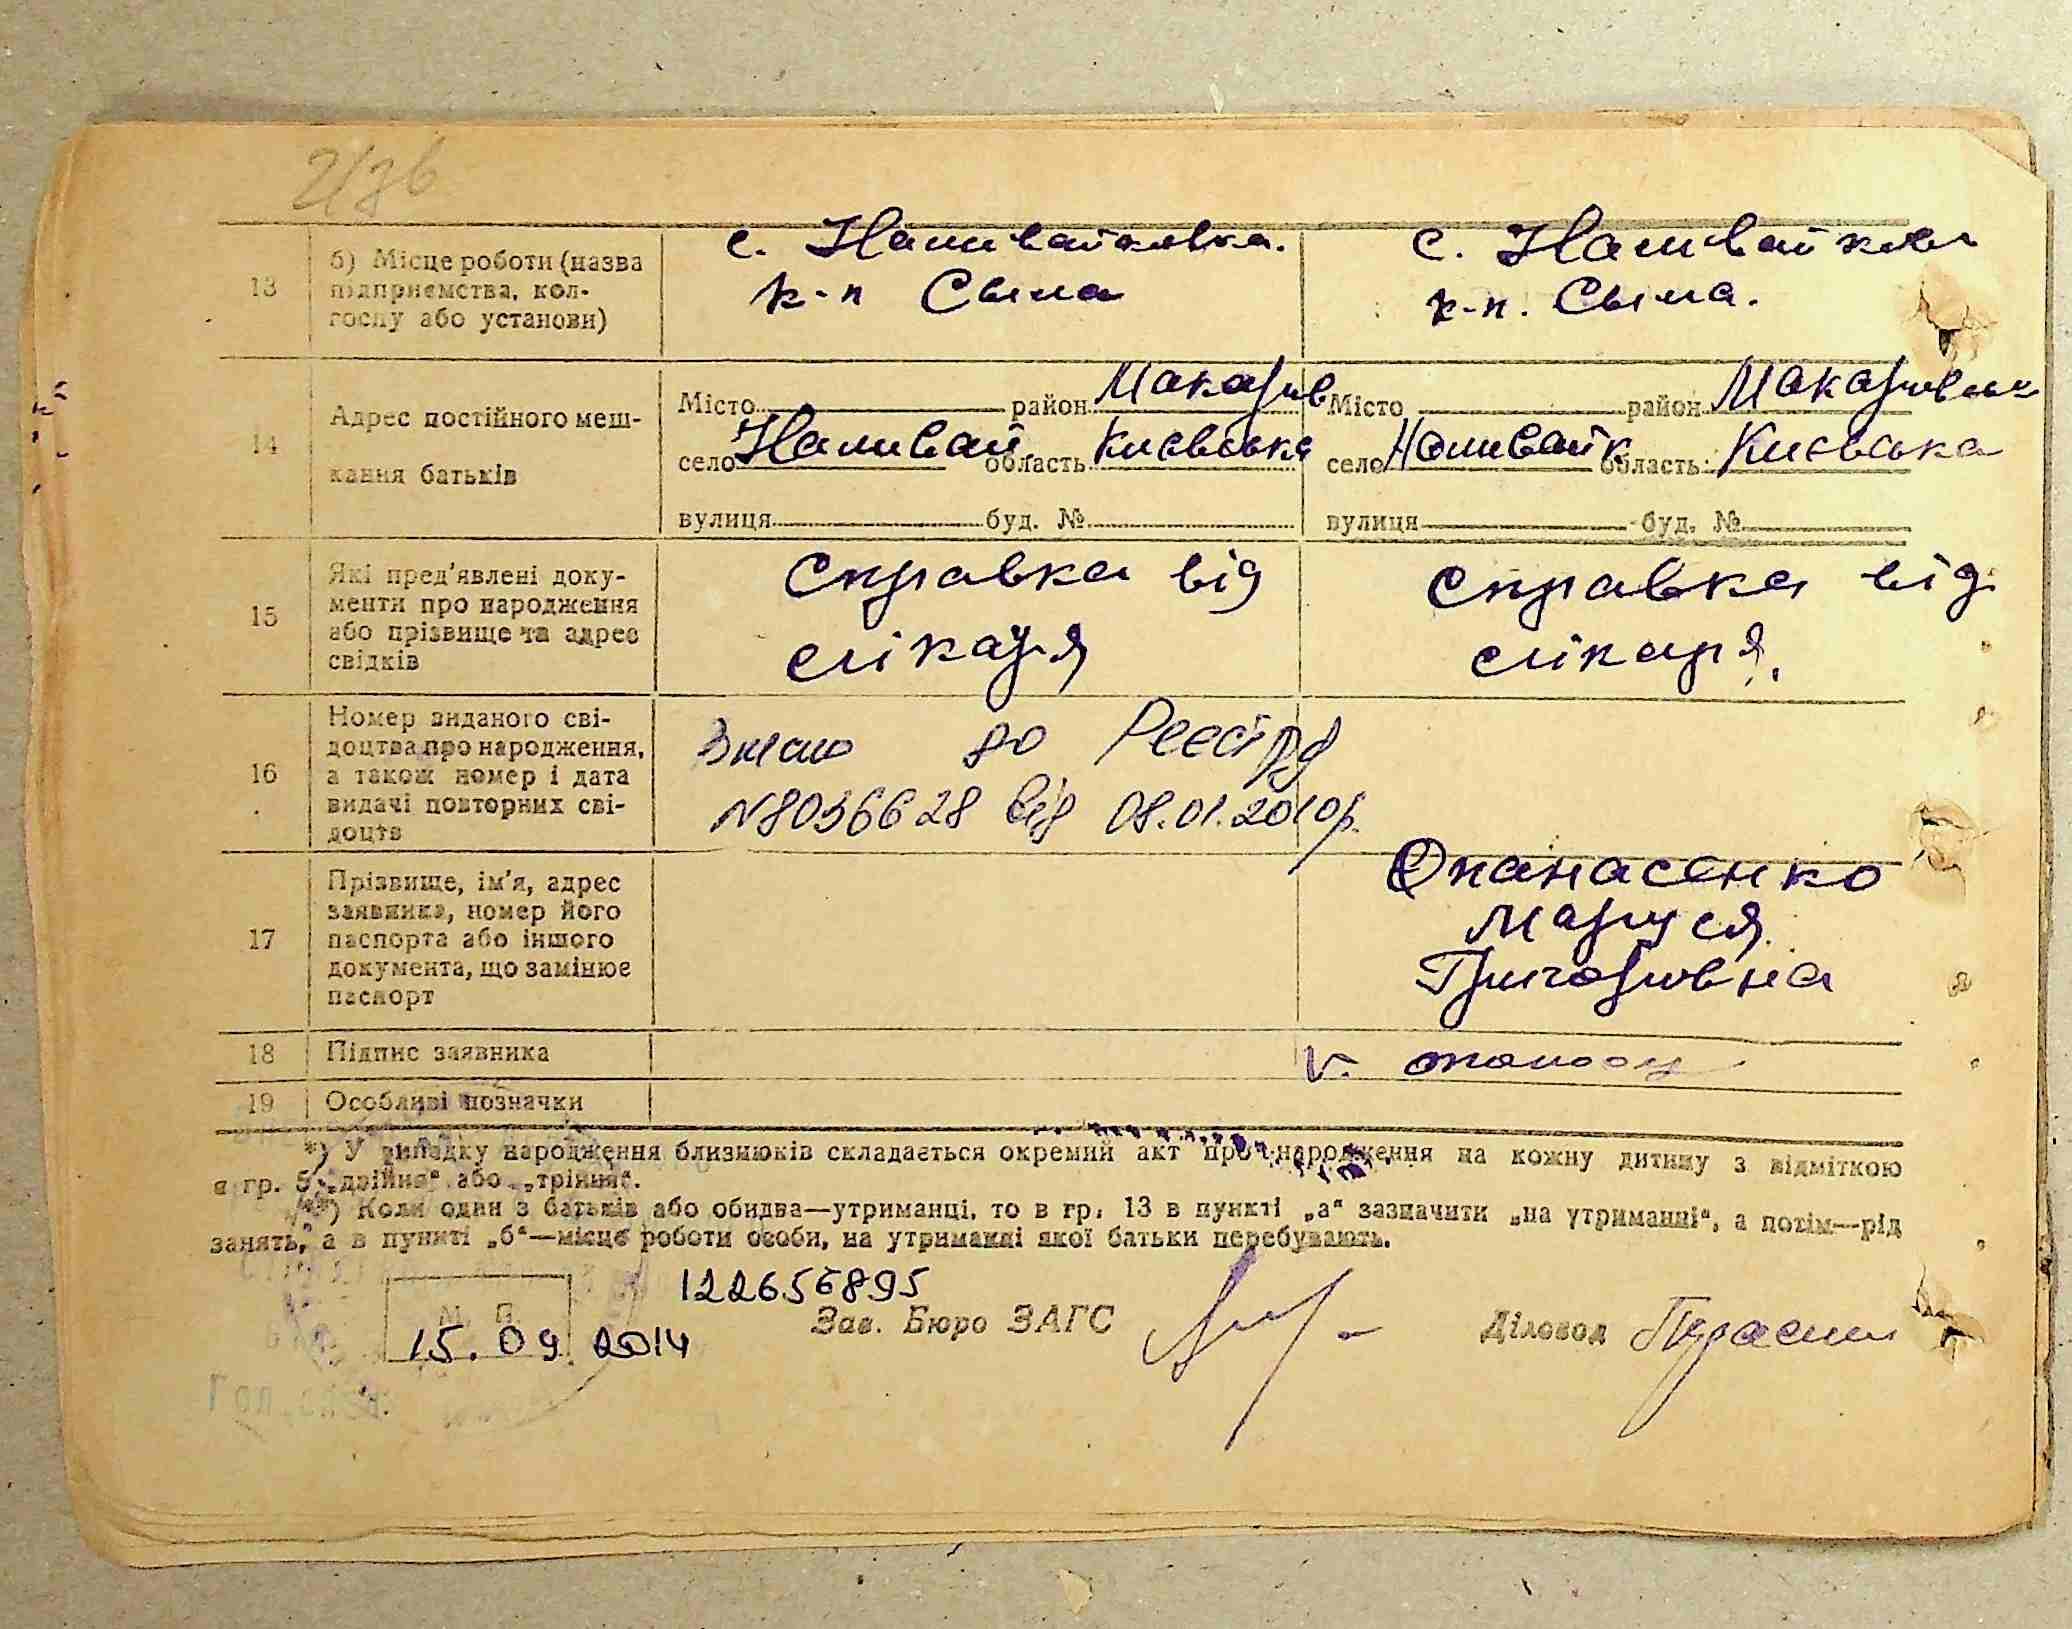 2/зв
13
б) Місце роботи (назва
підприємства, кол-
госпу або установи)
с. Наливайковка.
к-п Сыма
с. Наливайков
к-п. Сыма.
14
Адрес постійного меш-
кання батьків
Місто район Макарив
село Наливай область Києвська
вулиця буд. №
Місто район Макаривськ
село Наливайк область Києвська
вулиця буд. №
15
Які пред'явлені доку-
менти про народження
або прізвище та адрес
свідків
Справка від
лікаря
Справка від
лікаря.
16
Номер виданого сві-
доцтва про народження,
а також номер і дата
видачі повторних сві-
доцтв
до Реєстру
№8036628 від 08.01.2010р.
17
Прізвище, ім'я, адрес
заявника, номер його
паспорта або іншого
документа, що замінює
паспорт
Опанасенко
Маруся
Григоривна
18
Підпис заявника
19
Особливі позначки
*) У випадку народження близнюків складається окремий акт про народження на кожну дитину з відміткою
в гр. 5 „двійня“ або „трійня“.
**) Коли один з батьків або обидва—утриманці, то в гр. 13 в пункті „а“ зазначити „на утриманні“, а потім—рід
занять, а в пункті „б“—місце роботи особи, на утриманні якої батьки перебувають.
122656895
М. П.
15.09.2014
Зав. Бюро ЗАГС
Діловод